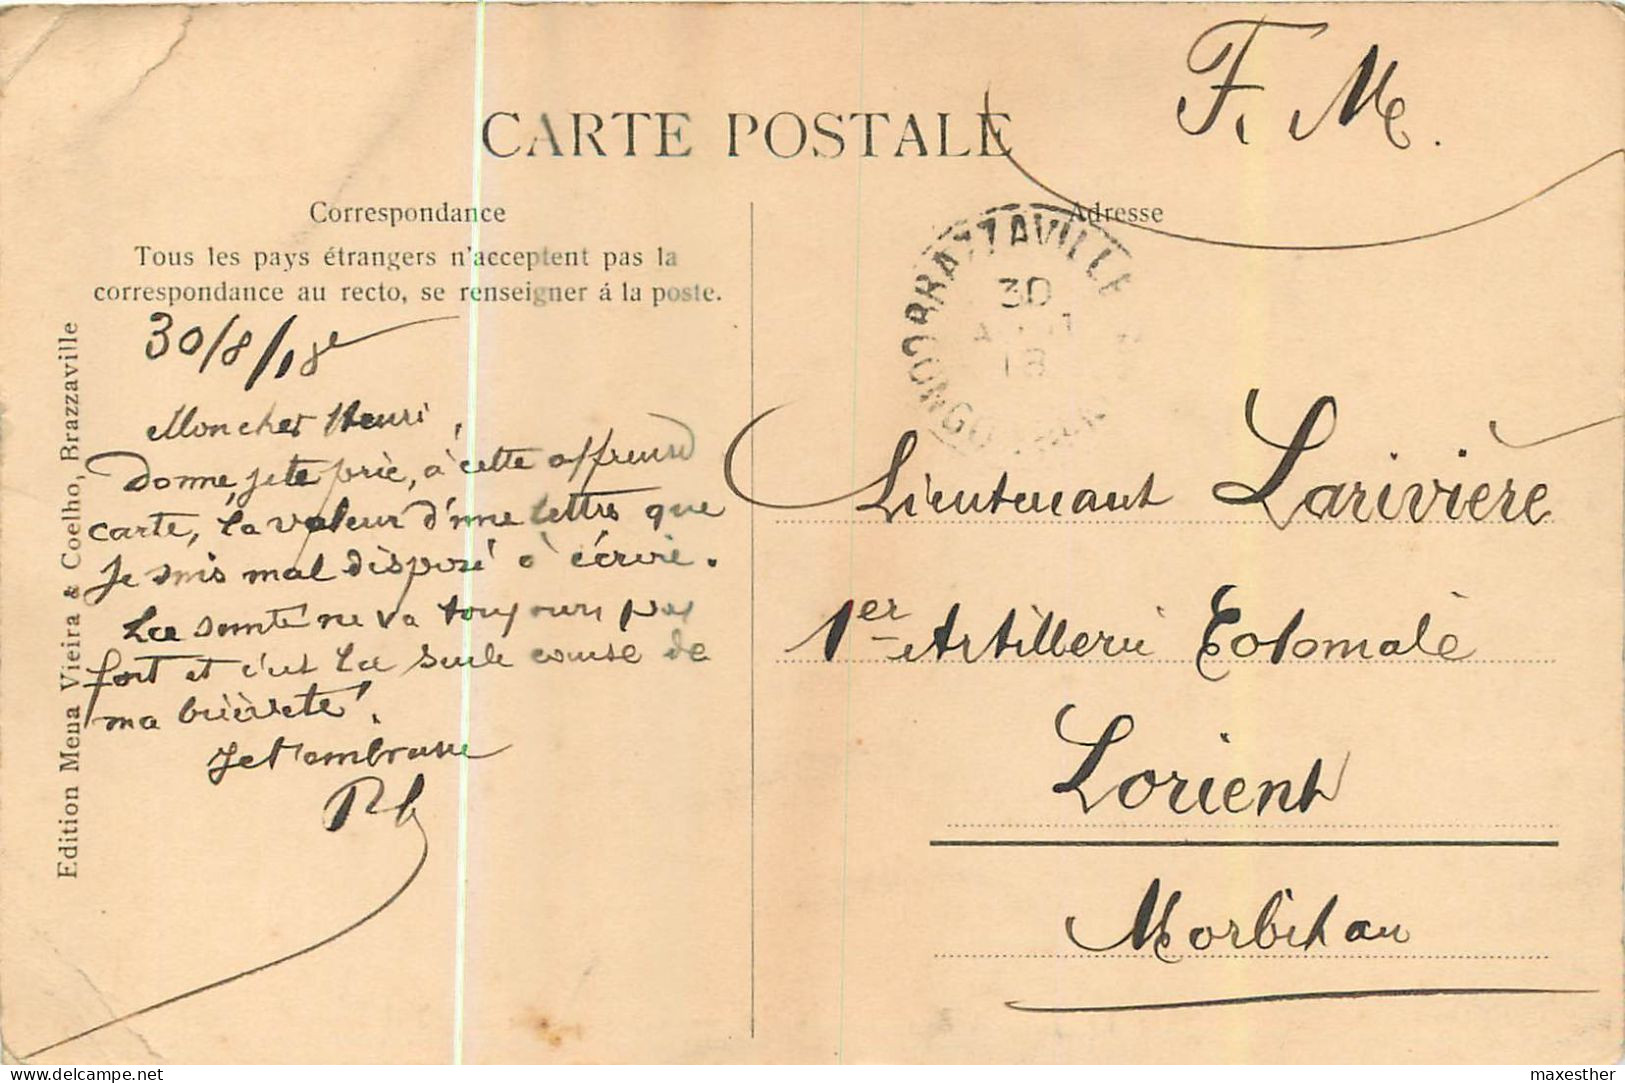 F. M.
CARTE POSTALE
Correspondance
Tous les pays étrangers n'acceptent pas la
correspondance au recto, se renseigner á la poste.
Edition Mena Vieira & Coelho, Brazzaville
30/8/18
Mon cher Henri,
Donne, je te prie, à cette affreuse
carte, la valeur d'une lettre que
je suis mal disposé à écrire.
La santé ne va toujours pas
fort et c'est la seule cause de
ma brièveté.
Je t'embrasse
Adresse
BRAZZAVILLE
30
AOUT
18
CONGO
Lieutenant Larivière
1er Artillerie Coloniale
Lorient
Morbihan
delcampe.net
maxesther